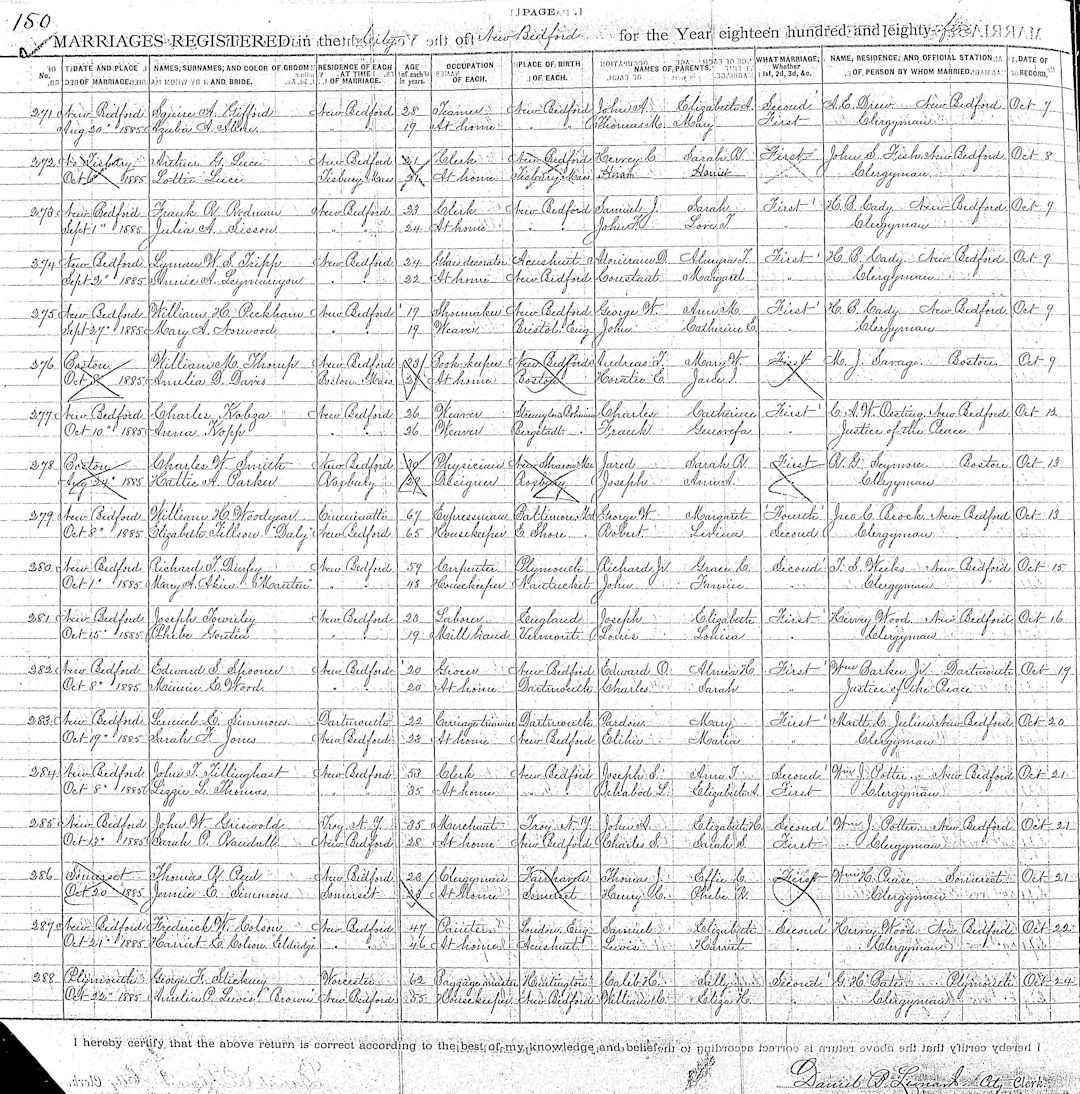 150
[PAGE .]
MARRIAGES REGISTERED in the City of New Bedford for the Year eighteen hundred and eighty-
No. DATE AND PLACE OF MARRIAGE. NAMES, SURNAMES, AND COLOR OF GROOM AND BRIDE. RESIDENCE OF EACH AT TIME OF MARRIAGE. AGE of each in years. OCCUPATION OF EACH. PLACE OF BIRTH OF EACH. NAMES OF PARENTS. WHAT MARRIAGE; Whether 1st, 2d, 3d, &c. NAME, RESIDENCE, AND OFFICIAL STATION OF PERSON BY WHOM MARRIED. DATE OF RECORD.
271 New Bedford Squire A. Gifford New Bedford 28 Teamer New Bedford John A. Elizabeth A. Second A. E. Drew New Bedford Oct 7
Aug 20" 1885 A. " " 19 At home " " Thomas M. Mary First Clergyman
272 No Tisbury G. Luce New Bedford 21 Clerk New Bedford Hervey C. Sarah First John S. Fish New Bedford Oct 8
Oct 1885 Lottie Luce Tisbury Mass 21 At home Tisbury Mass Hiram Harriet " Clergyman
273 New Bedford Frank Redman New Bedford 23 Clerk New Bedford Samuel J. Sarah First H. B. Cady New Bedford Oct 9
Sept 1" 1885 Julia A. Sisson " " 24 At home " " John H. Love T. " Clergyman
274 New Bedford Lyman W. S. Tripp New Bedford 24 Glass decorator Acushnet D. Almyra T. First H. B. Cady New Bedford Oct 9
Sept 2" 1885 Annie A. " " 22 At home New Bedford Constant Margaret " Clergyman
275 New Bedford William H. Peckham New Bedford 19 Shoemaker New Bedford George W. Ann M. First H. B. Cady New Bedford Oct 9
Sept 27" 1885 Mary A. Norwood " " 19 Weaver Bristol Eng John Catherine C. " Clergyman
276 Boston William M. Thorup New Bedford 23 Book keeper New Bedford Andreas T. Mary W. First M. J. Savage Boston Oct 9
Oct 1885 Amelia D. Davis Boston Mass At home Boston Horatio Jane T. Clergyman
277 New Bedford Charles Kobza New Bedford 26 Weaver Bohemia Charles Catherine First C. A. W. Oesting New Bedford Oct 12
Oct 10" 1885 Anna Kopp " " 26 Weaver Bergstadt " Frank Genovefa " Justice of the Peace
278 Boston Charles W. Smith New Bedford 30 Physician New Sharon Me Jared Sarah First R. G. Seymore Boston Oct 13
Aug 24" 1885 Hattie A. Parker Roxbury 27 Designer Roxbury Joseph Ann A. " Clergyman
279 New Bedford William H. Woodyear Cincinnatti 67 Expressman Baltimore Md George W. Margaret Fourth Jno C. Brock New Bedford Oct 13
Oct 8" 1885 Elizabeth Tillson "Daly" New Bedford 65 Housekeeper E Shore " Robert Levina Second Clergyman
280 New Bedford Richard T. Durfey New Bedford 59 Carpenter Plymouth Richard Jr Grace C. Second T. S. Weeks New Bedford Oct 15
Oct 1" 1885 Mary A. Akin " " 48 Housekeeper Nantucket John Fannie " Clergyman
281 New Bedford Joseph Townley New Bedford 23 Labour England Joseph Elizabeth First Hervey Wood New Bedford Oct 16
Oct 15" 1885 Phebe " " 19 Mill hand Vermont Louis Louisa " Clergyman
282 New Bedford Edward S. Spooner New Bedford 20 Grocer New Bedford Edward O. Almira H. First Wm Barker Jr Dartmouth Oct 19
Oct 8" 1885 Minnie E. Wood " " 20 At home Dartmouth Charles Sarah " Justice of the Peace
283 New Bedford Lemuel E. Simmons Dartmouth 22 Carriage trimmer Dartmouth Pardon Mary First Matt C. Julien New Bedford Oct 20
Oct 19" 1885 Sarah F. Jones New Bedford 23 At home New Bedford Elihu Maria " Clergyman
284 New Bedford John T. Tillinghast New Bedford 53 Clerk New Bedford Joseph S. Ann T. Second Wm J. Potter New Bedford Oct 21
Oct 8" 1885 Lizzie L. Thomas " " 35 At home " " Ichabod L. Elizabeth A. First Clergyman
285 New Bedford John W. Griswold Troy N. Y. 35 Merchant Troy N. Y. John A. Elizabeth H. Second Wm J. Potter New Bedford Oct 21
Oct 13" 1885 Sarah P. Randall New Bedford 28 At home New Bedford Charles S. Sarah S. First Clergyman
286 Somerset Thomas Reed New Bedford 23 Clergyman Fairhaven Thomas J. Effie C. First Wm H. Pease Somerset Oct 21
Oct 20" 1885 Jennie C. Simmons Somerset 23 At Home Somerset Henry C. Phebe Clergyman
287 New Bedford Frederick W. Colson New Bedford 47 Painter London Eng Samuel Elizabeth Second Hervey Wood New Bedford Oct 22
Oct 21" 1885 Harriet C. Colson Eldridge " " 46 At home Acushnet Lewis Harriet " Clergyman
288 Plymouth George F. Stickney Worcester 62 Baggage master Huntington Caleb H. Sally Second G. H. Bates Plymouth Oct 24
Oct 22" 1885 Amelia P. Lewis "Brown" New Bedford 55 Housekeeper New Bedford William C. Eliza H. " Clergyman
I hereby certify that the above return is correct according to the best of my knowledge and belief
Daniel B. Leonard City Clerk.